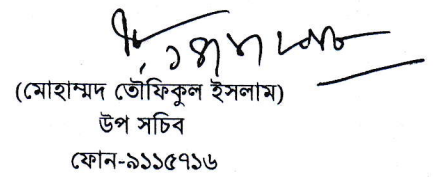 (মোহাম্মদ তৌফিকুল ইসলাম)
উপ সচিব
ফোন-৯১১৫৭১৬